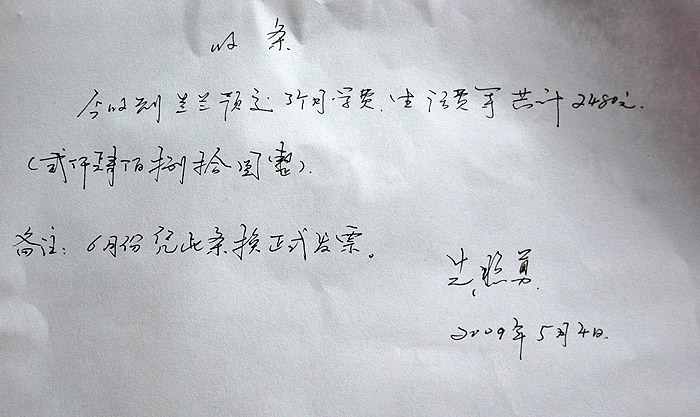 收条
今收到兰兰预交3个月学费、生活费等共计2480元.
(贰仟肆佰捌拾圆整).
备注：6月份凭此条换正式发票。
照勇
2009年5月4日.